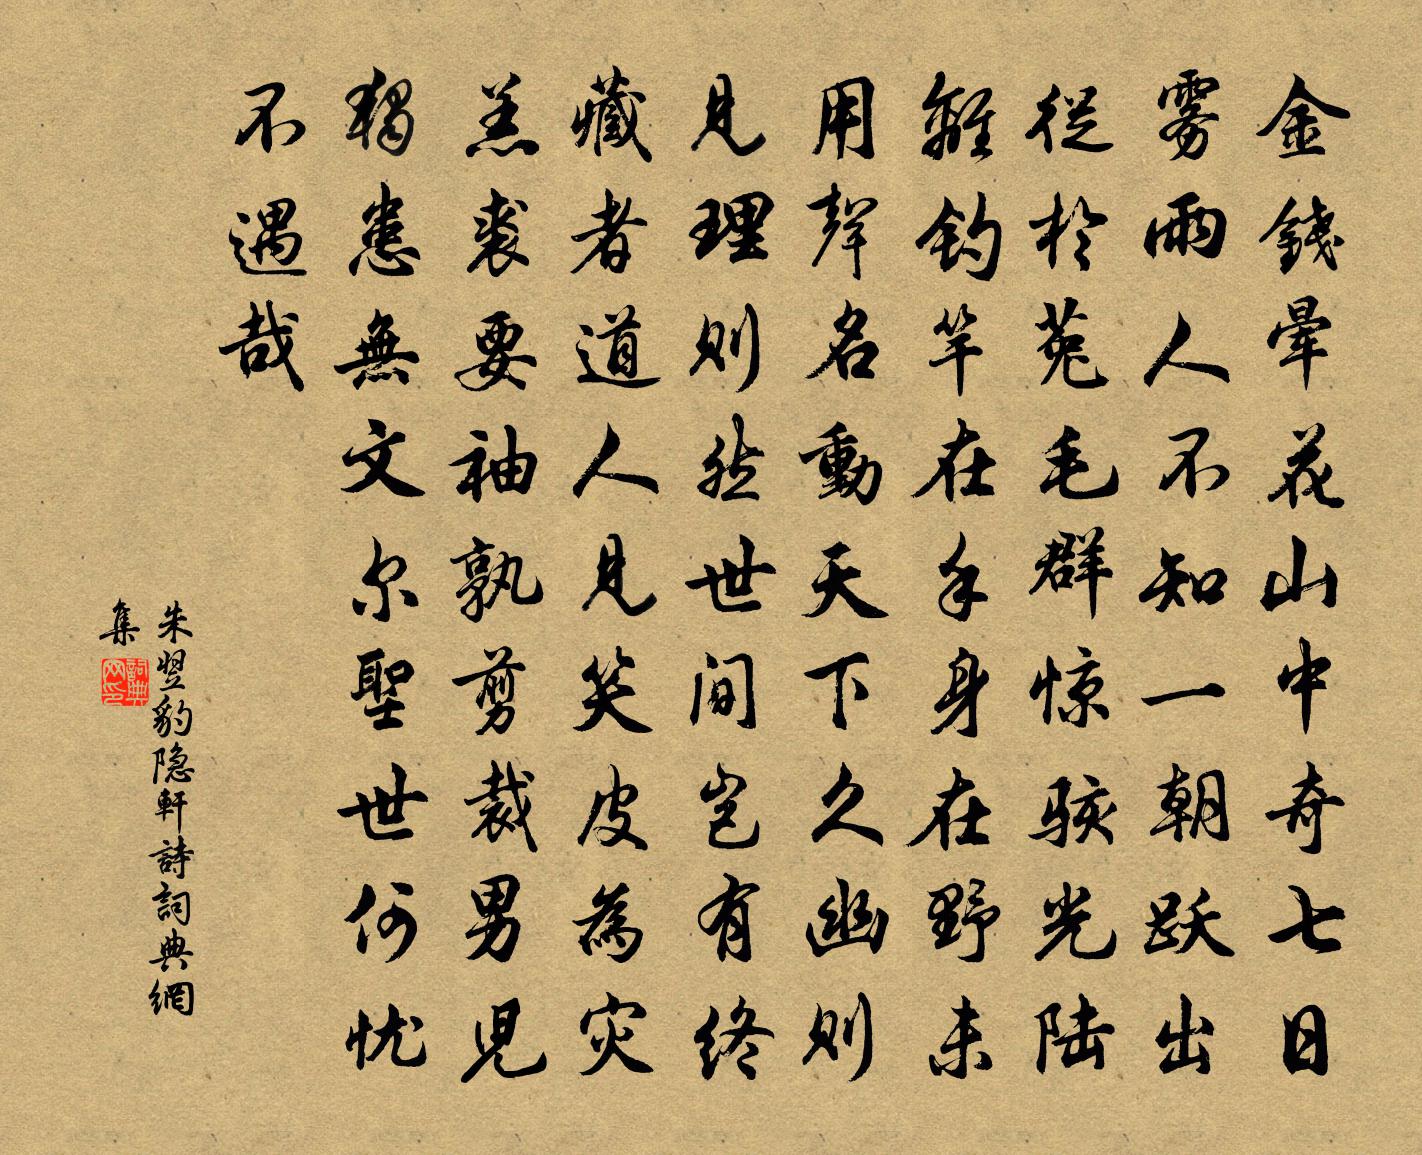 金錢暈花山中奇七日
雾雨人不知一朝跃出
従於菟毛群惊骇光陆
離钓竿在手身在野未
用聲名動天下久幽则
見理则然世间岂有终
藏者道人見笑皮為灾
羔裘要袖孰剪裁男児
獨患無文尔聖世何忧
不遇哉
朱翌豹隐軒詩詞典網
集